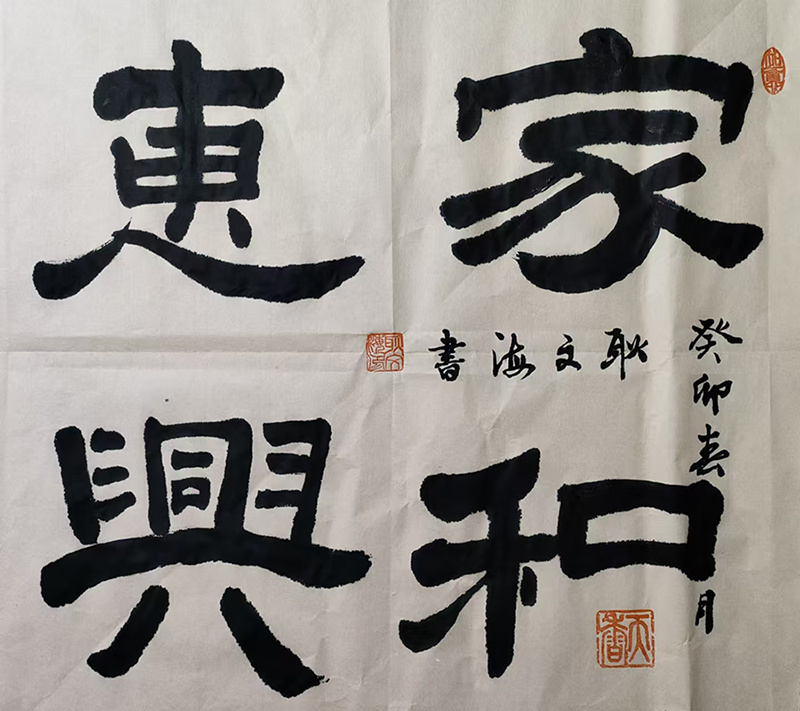 家和
興
癸卯春月
耿文海書